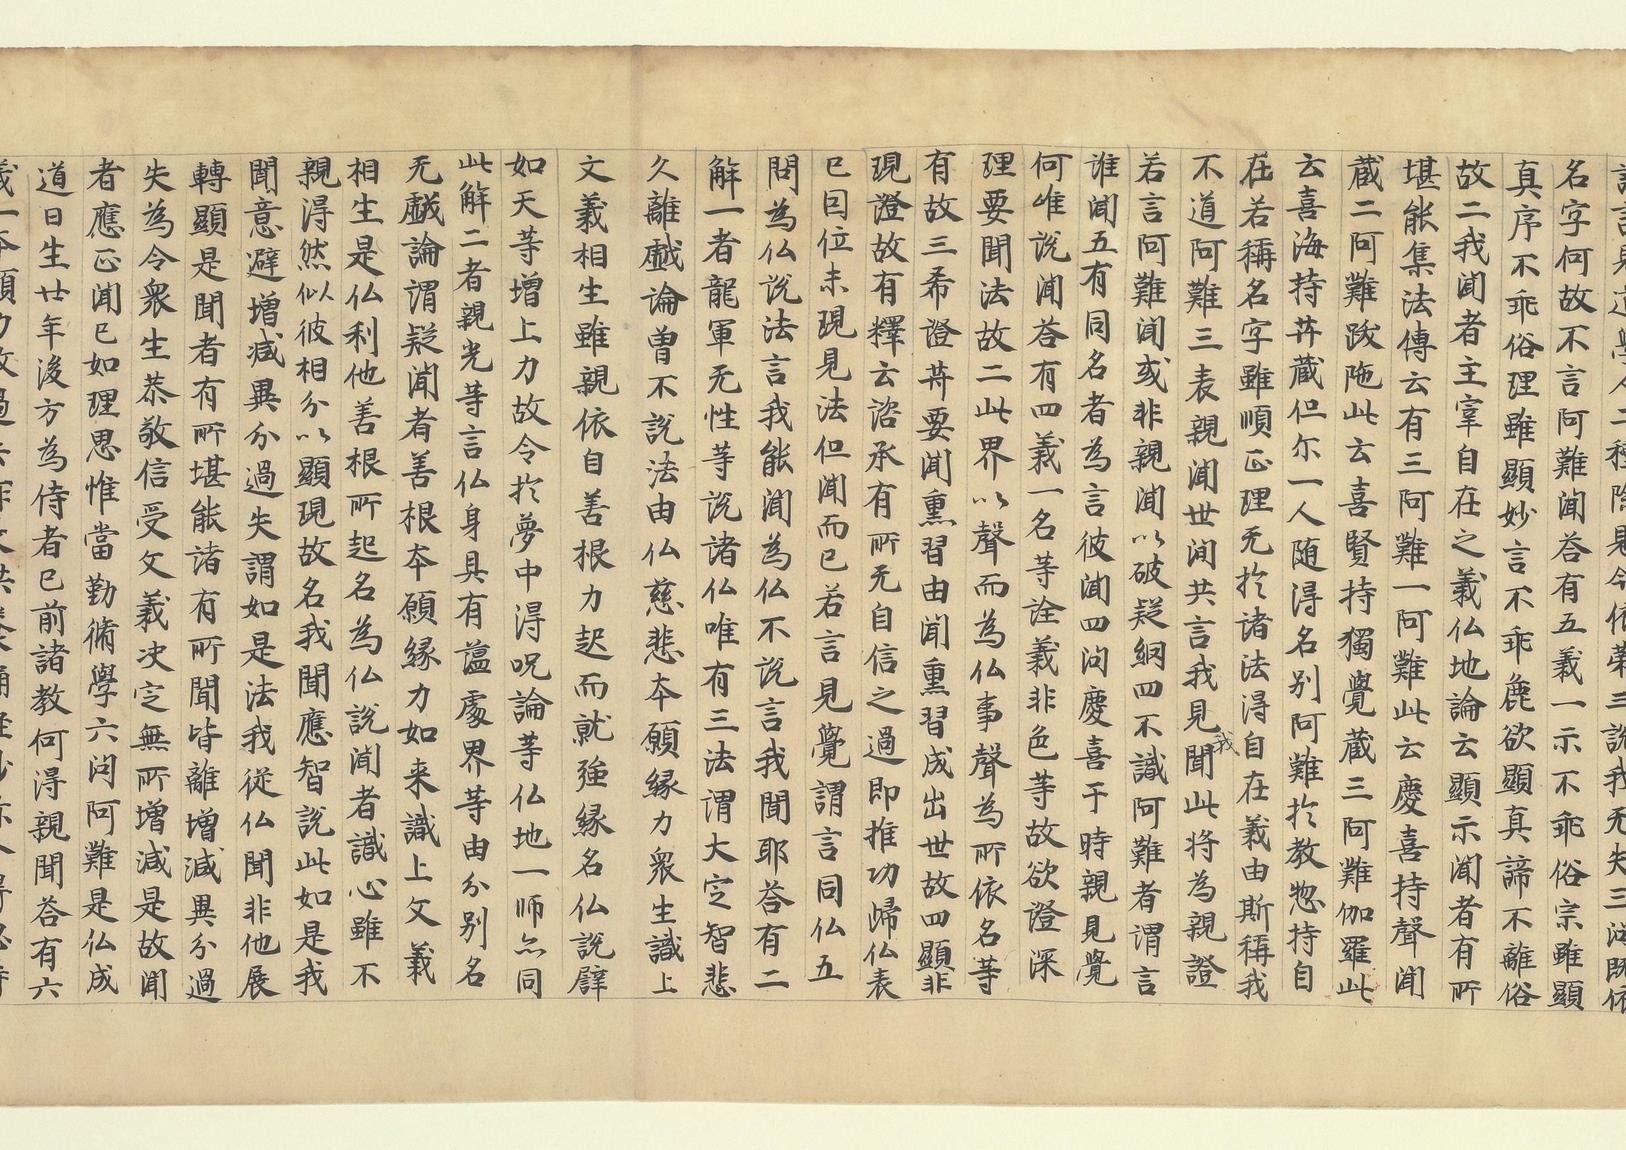 名字何故不言阿難聞答有五義一示不乖俗宗雖顯
真序不乖俗理雖顯妙言不乖麁欲顯真諦不離俗
故二我聞者主宰自在之義仏地論云顯示聞者有所
堪能集法傳云有三阿難一阿難此云慶喜持聲聞
藏二阿難跋陁此云喜賢持獨覺藏三阿難伽羅此
云喜海持䒑藏但尔一人随得名別阿難於教惣持自
在若稱名字雖順正理无於諸法得自在義由斯稱我
不道阿難三表親聞世間共言我見我聞此将為親證
若言阿難聞或非親聞以破疑網四不識阿難者謂言
谁聞五有同名者為言彼聞四问慶喜于時親見覺
何唯說聞答有四義一名等詮義非色等故欲證深
理要聞法故二此界以聲而為仏事聲為所依名等
有故三希證䒑要聞熏習由聞熏習成出世故四顯非
現證故有釋云諮承有所无自信之過即推功歸仏表
已因位未現見法但聞而已若言見覺謂言同仏五
問為仏說法言我能聞為仏不說言我聞耶答有二
解一者龍軍无性等說諸仏唯有三法謂大定智悲
久離戲論曽不說法由仏慈悲夲願縁力衆生識上
文義相生雖親依自善根力起而就強縁名仏說譬
如天等增上力故令於夢中得呪論等仏地一師亦同
此解二者親光等言仏身具有藴處界等由分別名
无戲論謂疑聞者善根夲願縁力如来識上文義
相生是仏利他善根所起名為仏說聞者識心雖不
親得然似彼相分以顯現故名我聞應智說此如是我
聞意避增减異分過失謂如是法我從仏聞非他展
轉顯是聞者有所堪能諸有所聞皆離增减異分過
失為令衆生恭敬信受文義决定無所增减是故聞
者應正聞已如理思惟當勤脩學六问阿難是仏成
道日生廿年後方為侍者已前諸教何得親聞答有六